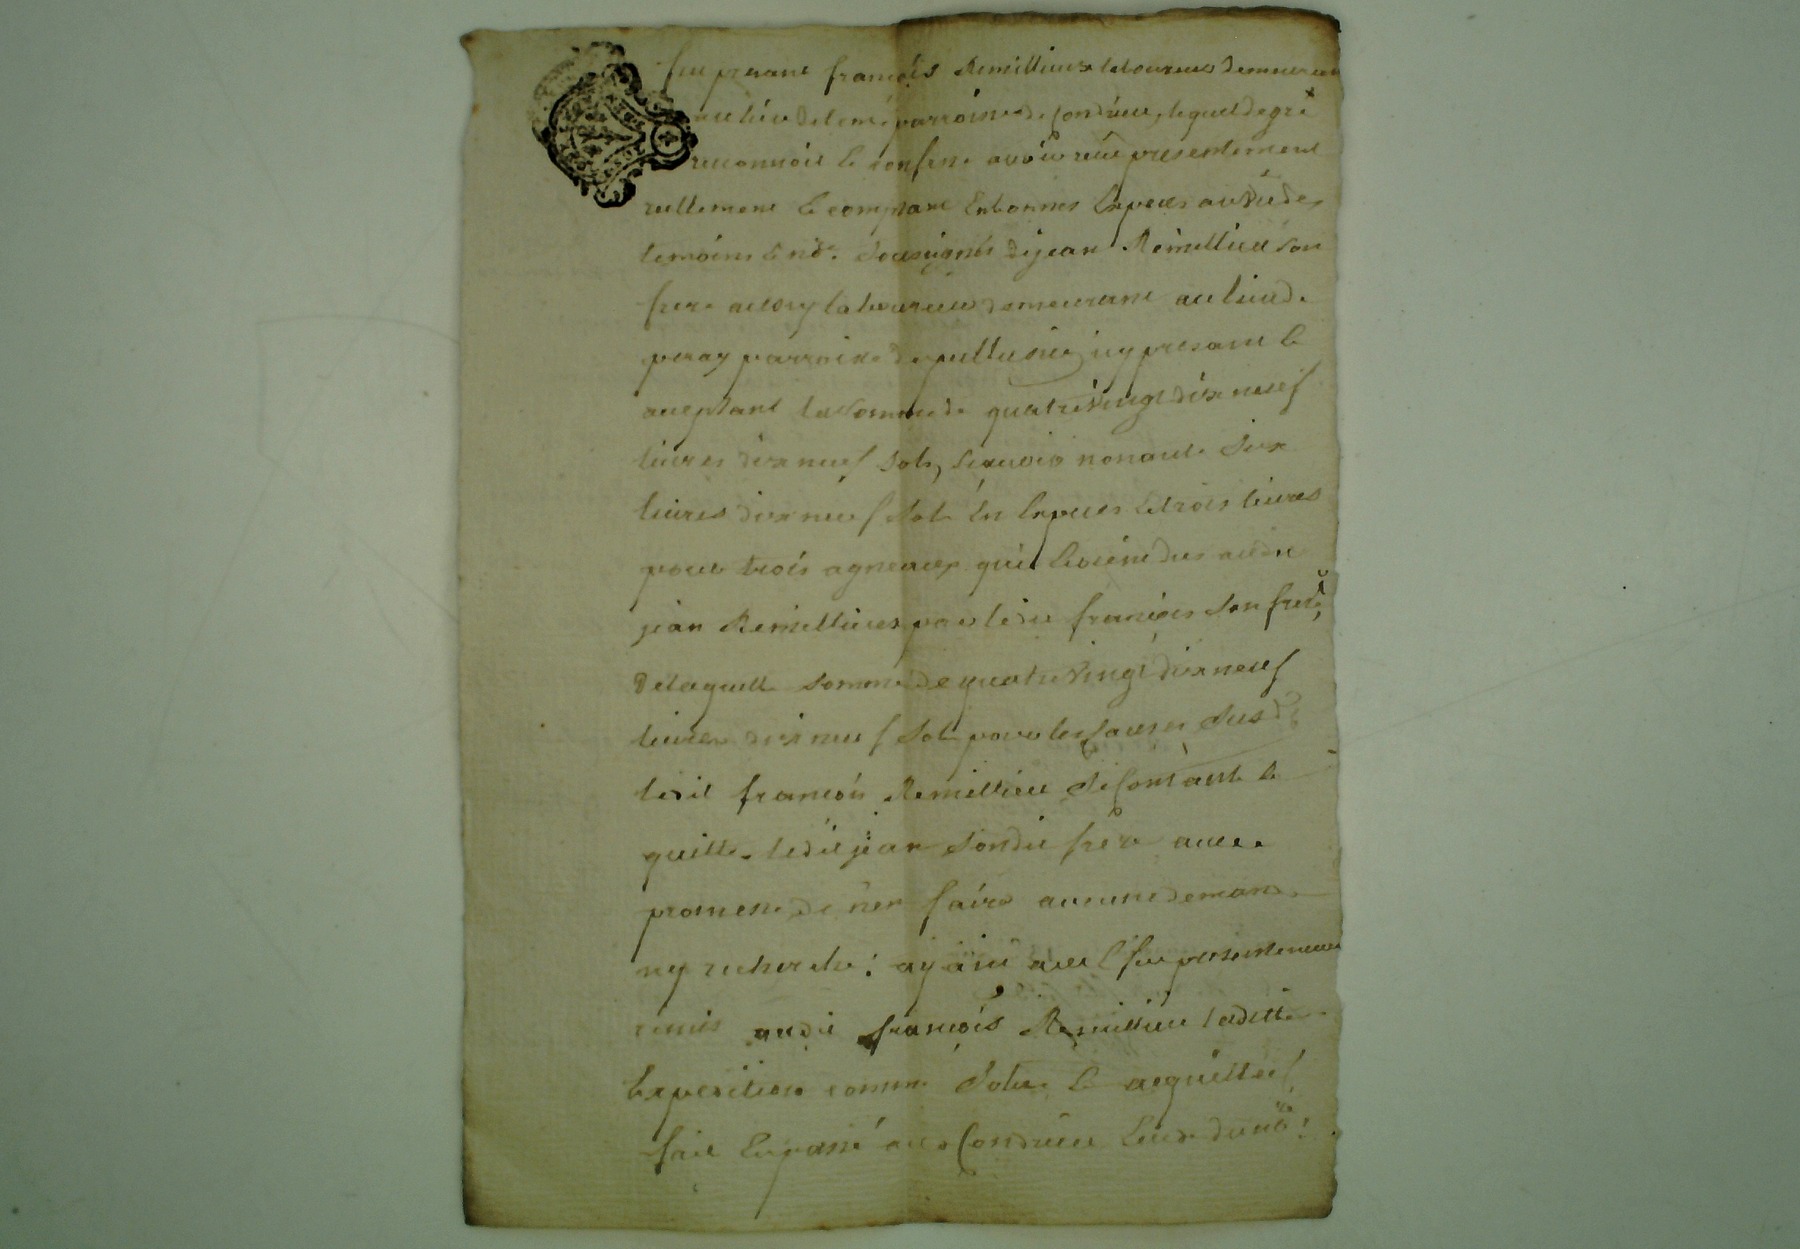 fut presant françois Remillieux laboureur demeurant
au lieu de parroisse de Condrieu, lequel de gré
reconnoit & confesse avoir reçu presentement
reellement & comptant en bonnes especes au vû des
temoins & nore. soussignés de jean Remillieu son
frere aussy laboureur demeurant au lieu de
peray parroisse de pellusin, icy presant &
aceptant la somme de quatrevingt dix neuf
livres dix neuf sols, scavoir nonante six
livres dix neuf sols en especes & trois livres
pour trois agneaux qui
jean Remillieux par ledit françois son frere,
de laquelle somme de quatre vingt dix neuf
livres dix neuf sols pour les causes susd
ledit françois Remillieu se contante &
quitte ledit jean sondit frere avec
promesse de n'en faire aucune demande
ny recherche: ayant presentement
remis audit françois Remillieu laditte
expedition comme solue & acquittée,
fait & passé audit Condrieu etude dud nore.